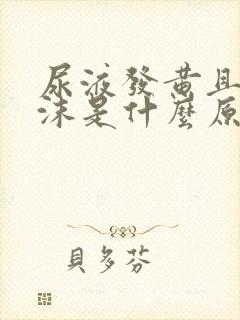 尿液發黄且
沫是什麼原
貝多芬